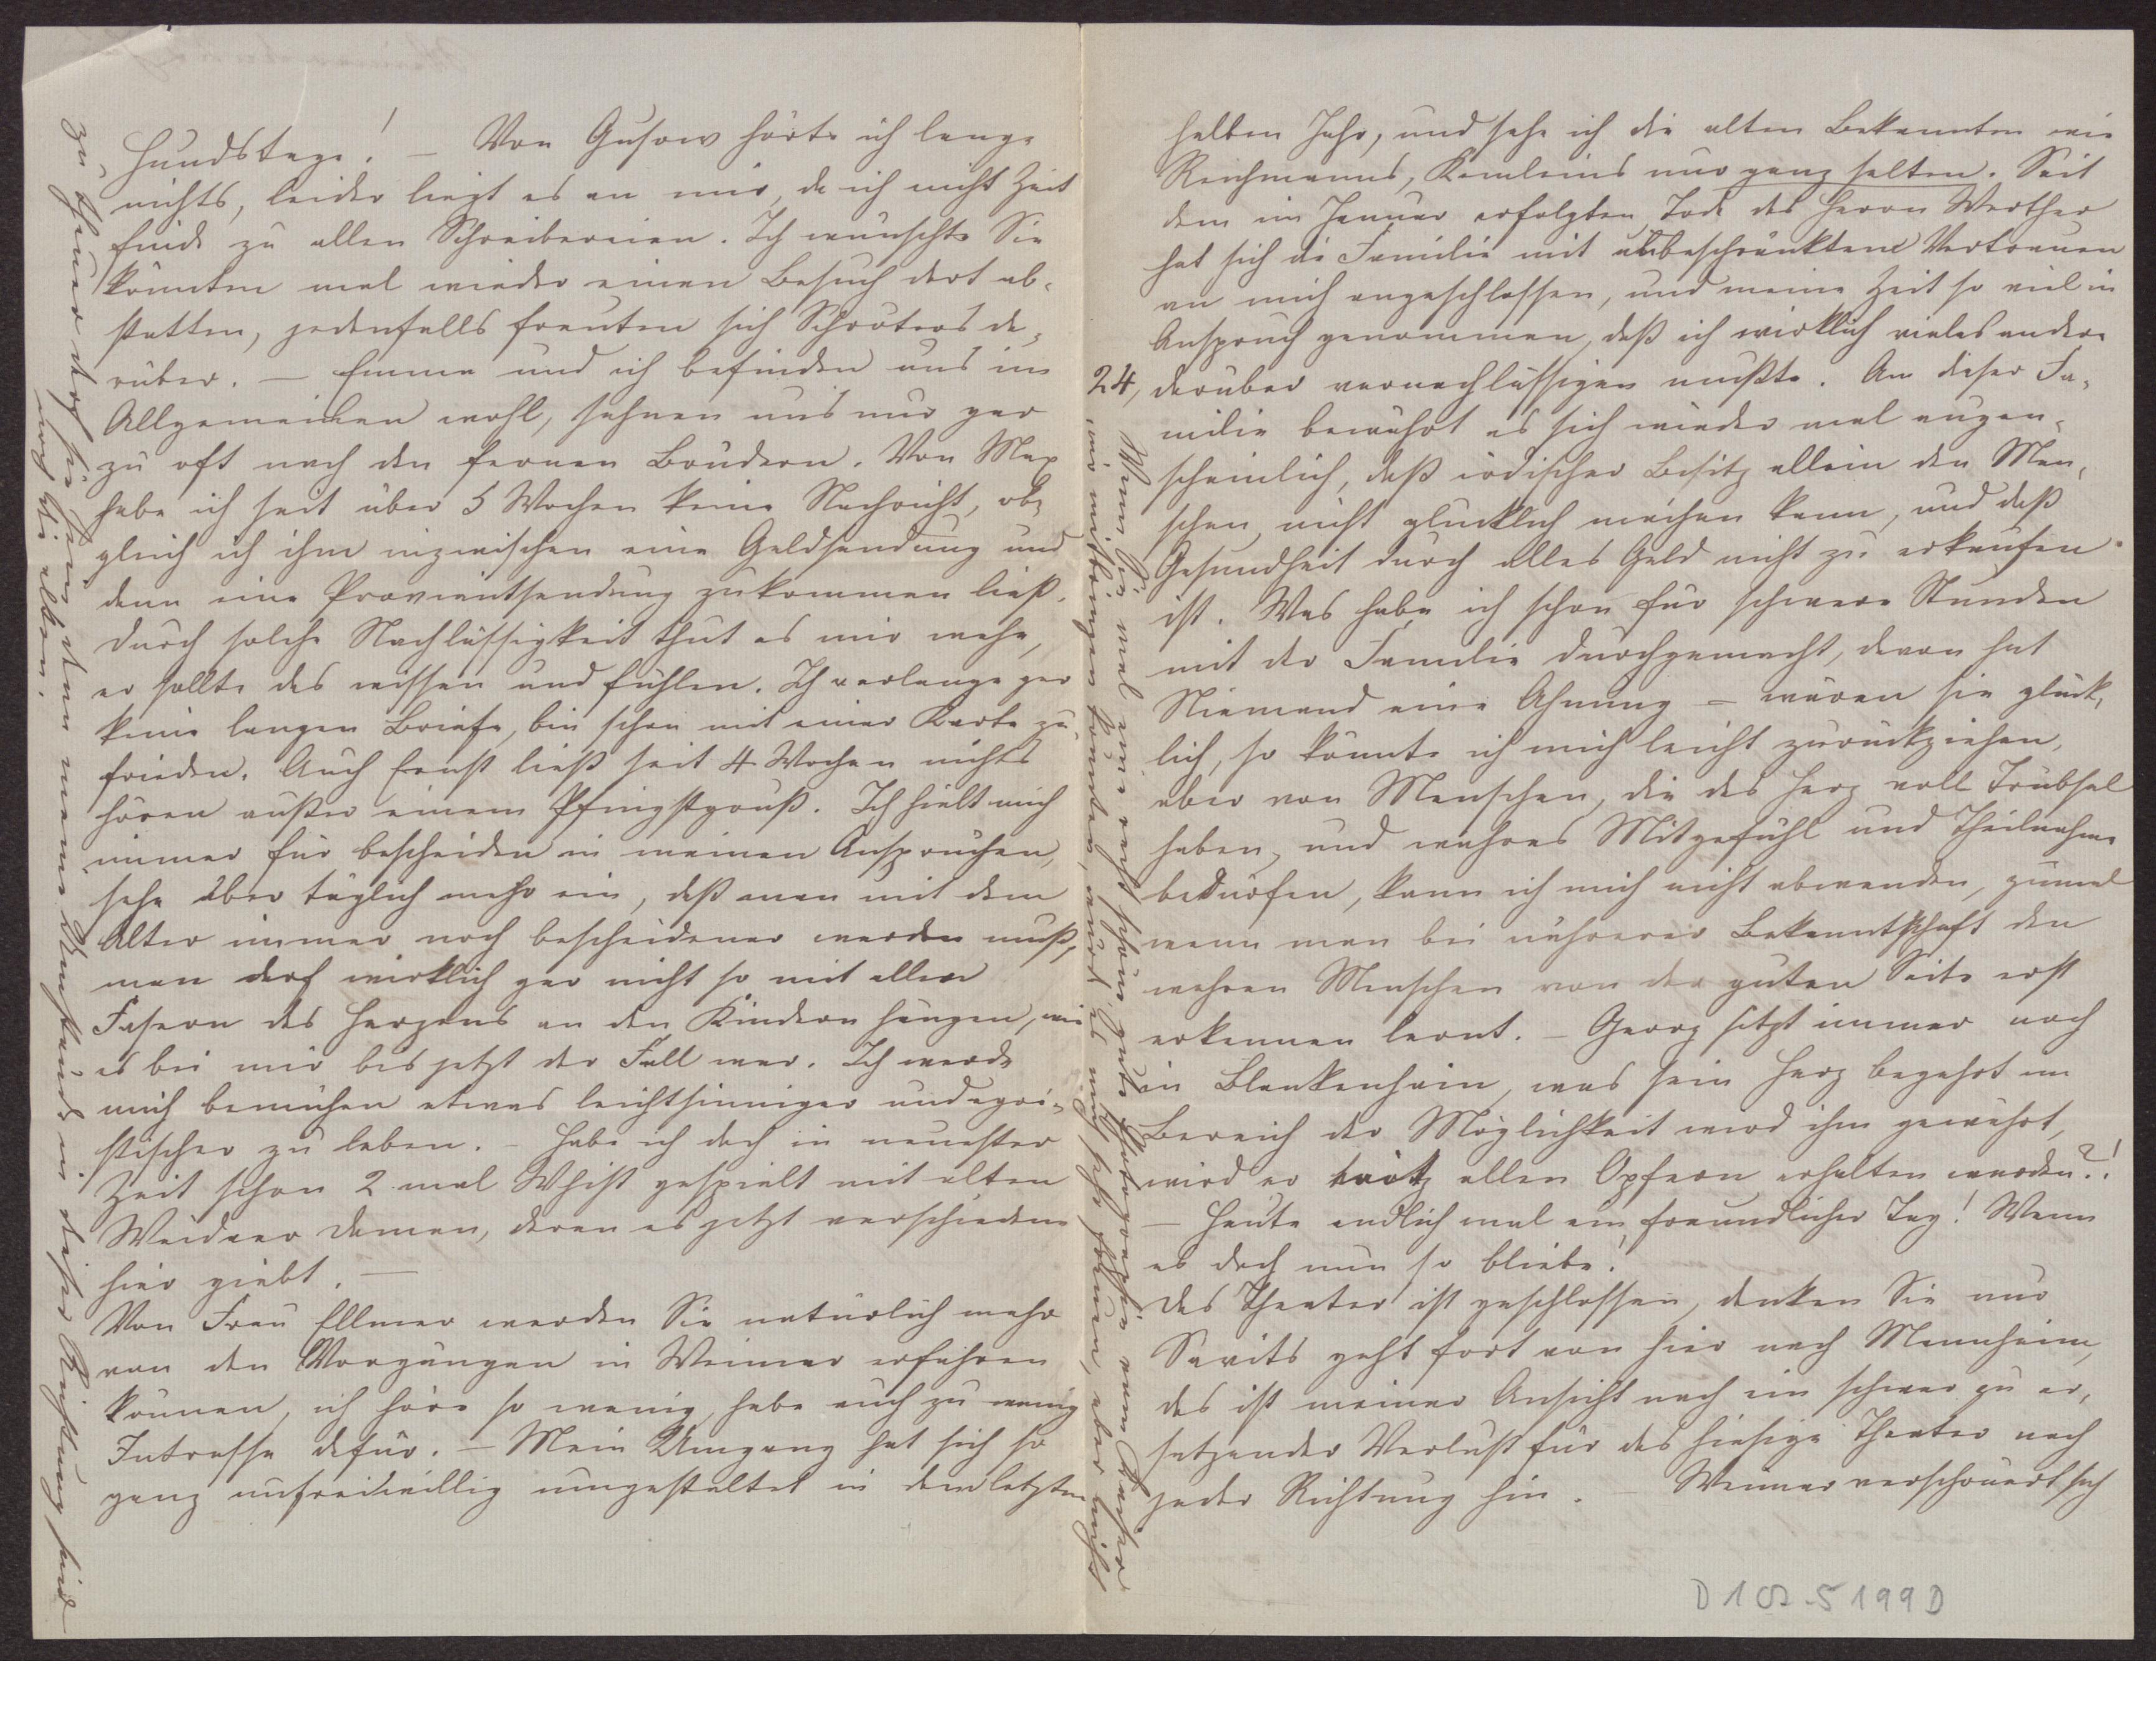 Hundstage! — Von Gusow hörte ich lange
nichts, leider liegt es an mir, da ich nicht Zeit
finde zu allen Schreibereien. Ich wünschte Sie
könnten mal wieder einen Besuch dort ab-
statten, jedenfalls freuten sich Schröters da-
rüber. — Emma und ich befinden uns im
Allgemeinen wohl, sehnen uns nur gar
zu oft nach den fernen Brüdern. Von Max
habe ich seit über 5 Wochen keine Nachricht, ob-
gleich ich ihm inzwischen eine Geldsendung und
dann eine Provientsendung zukommen ließ.
Durch solche Nachlässigkeit thut es mir wehe,
er sollte das wissen und fühlen. Ich verlange gar
keine langen Briefe, bin schon mit einer Karte zu-
frieden. Auch Ernst ließ seit 4 Wochen nichts
hören außer einem Pfingstgruß. Ich hielt mich
immer für bescheiden in meinen Ansprüchen,
sehe aber täglich mehr ein, daß man mit dem
Alter immer noch bescheidener werden muß,
man darf wirklich gar nicht so mit allen
Fasern des Herzens an den Kindern hängen, wie
es bei mir bis jetzt der Fall war. Ich werde
mich bemühen etwas leichtsinniger und egoi-
stischer zu leben. — Habe ich doch in neuester
Zeit schon 2 mal Whist gespielt mit alten
Damen, deren es jetzt verschiedene
hier giebt. —
Von Frau Ellmer werden Sie natürlich mehr
von den Vorgängen in Weimar erfahren
können, ich höre so wenig, habe auch zu wenig
Intresse dafür. — Mein Umgang hat sich so
ganz unfreiwillig umgestaltet in dem letzten
zu theuer doch für Ihnen, denn meine Umstände in dieser Richtung sind
noch die alten.
halben Jahr, und sehe ich die alten Bekannten wie
Reichmanns, nur ganz selten. Seit
dem im Januar erfolgten Tode des Herrn Werther
hat sich die Familie mit unbeschränktem Vertrauen
an mich angeschlossen, und meine Zeit so viel in
Anspruch genommen, daß ich wirklich vieles andere
24, darüber vernachlässigen mußte. An dieser Fa-
milie bewahrt es sich wieder mal augen-
scheinlich, daß irdischer Besitz allein den Men-
schen nicht glücklich machen kann, und daß
Gesundheit durch alles Geld nicht zu erkaufen
ist. Was habe ich schon für schwere Stunden
mit der Familie durchgemacht, davon hat
Niemand eine Ahnung — wären sie glück-
lich, so könnte ich mich leicht zurückziehen,
aber von Menschen, die das Herz voll Trübsal
haben, und wahres Mitgefühl und Theilnahme
bedürfen, kann ich mich nicht abwenden, zumal
wenn man bei näherer Bekanntschaft den
wahren Menschen von der guten Seite erst
erkennen lernt. — Georg sitzt immer noch
in Blankenhain, was sein Herz begehrt im
Bereich der Möglichkeit wird ihm gewährt,
wird er trotz allen Opfern erhalten werden?!
— Heute endlich mal ein freundlicher Tag! Wenn
es doch nun so bliebe!
Das Theater ist geschlossen, denken Sie nur
Savits geht fort von hier nach Mannheim,
das ist meiner Ansicht nach ein schwer zu er-
setzender Verlust für das hiesige Theater nach
jeder Richtung hin. — Weimar verschönert sich
Wenn Sie mal eine recht schöne, gute Photographie vom Kaiser
mir mitbringen könnten, würd es mich sehr freuen, aber nicht
D 102-5199D